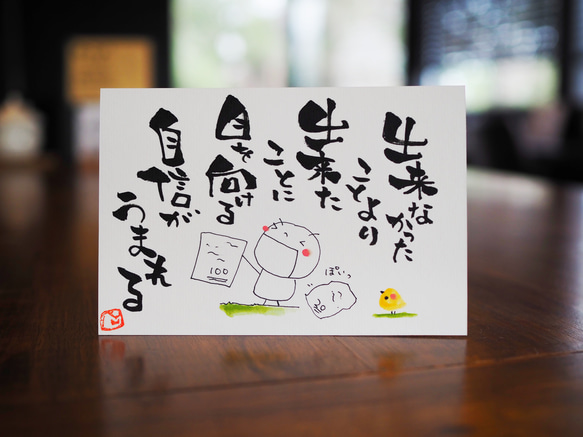 出来なかった
ことより
出来た
ことに
目を向ける
自信が
うまれる
100
ぽいっ